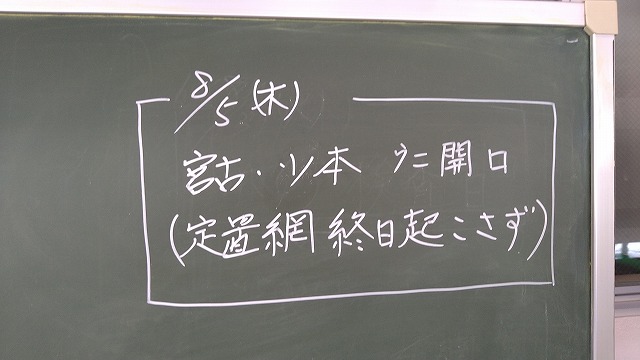 8/5(木)
宮古・小本 ウニ開口
(定置網 終日起こさず)